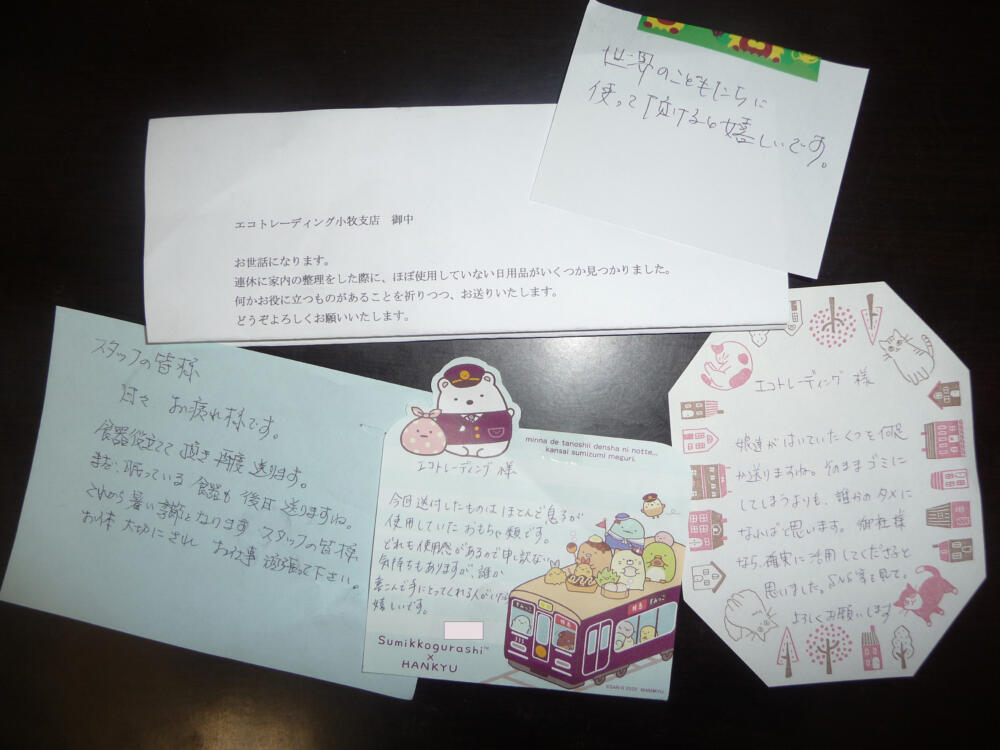 世界のこどもたちに
使って頂けると嬉しいです。
エコトレーディング小牧支店　御中
お世話になります。
連休に家内の整理をした際に、ほぼ使用していない日用品がいくつか見つかりました。
何かお役に立つものがあることを祈りつつ、お送りいたします。
どうぞよろしくお願いいたします。
スタッフの皆様
日々 お疲れ様です。
食器役立てて頂き 再度 送ります。
まだ、眠っている 食器も 後日 送りますね。
これから 暑い季節となります スタッフの皆様
お体 大切にされ お仕事 頑張って下さい。
minna de tanoshii densha ni notte...
kansai sumizumi meguri.
エコトレーディング 様
今回送付したものはほとんど息子が
使用していた おもちゃ類です。
どれも使用感があるので申し訳ない
気持ちもありますが、誰か
喜んで手にとってくれる人がいたら
嬉しいです。
Sumikkogurashi™
×
HANKYU
特急 すみっこ
エコトレーディング 様
娘達がはいていたくつを何足
か送りますね。そのままゴミに
してしまうよりも、誰かのタメに
なればと思います。御社様
なら、確実に活用してくださると
思いました。SNS等を見て。
よろしくお願いします